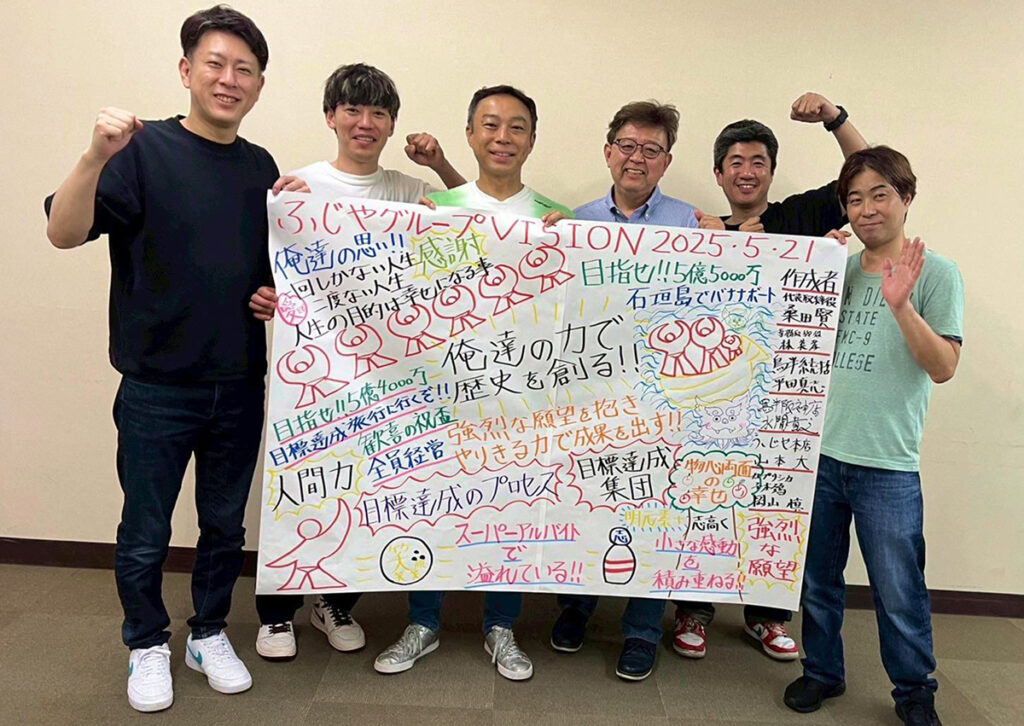 ふじやグループVISION 2025・5・21
俺達の思い!!
感謝
1回しかない人生
二度ない人生
人生の目的は幸せになる事
愛
目指せ!!5億4000万
目標達成旅行に行くぞ!!
歓喜の祝盃
全員経営
俺達の力で
歴史を創る!!
強烈な願望を抱き
やりきる力で成果を出す!!
人間力
目標達成のプロセス
目標達成
集団
スーパーアルバイト
で
溢れている!!
目指せ!!5億5000万
石垣島でバナナボート
物心両面
の
幸せ
志高く
小さな感動
を
積み重ねる!!
強烈
な
願望
志
作成者
代表取締役
桒田賢
山本 大
岡山 慎
SAN DIEGO
STATE
COLLEGE